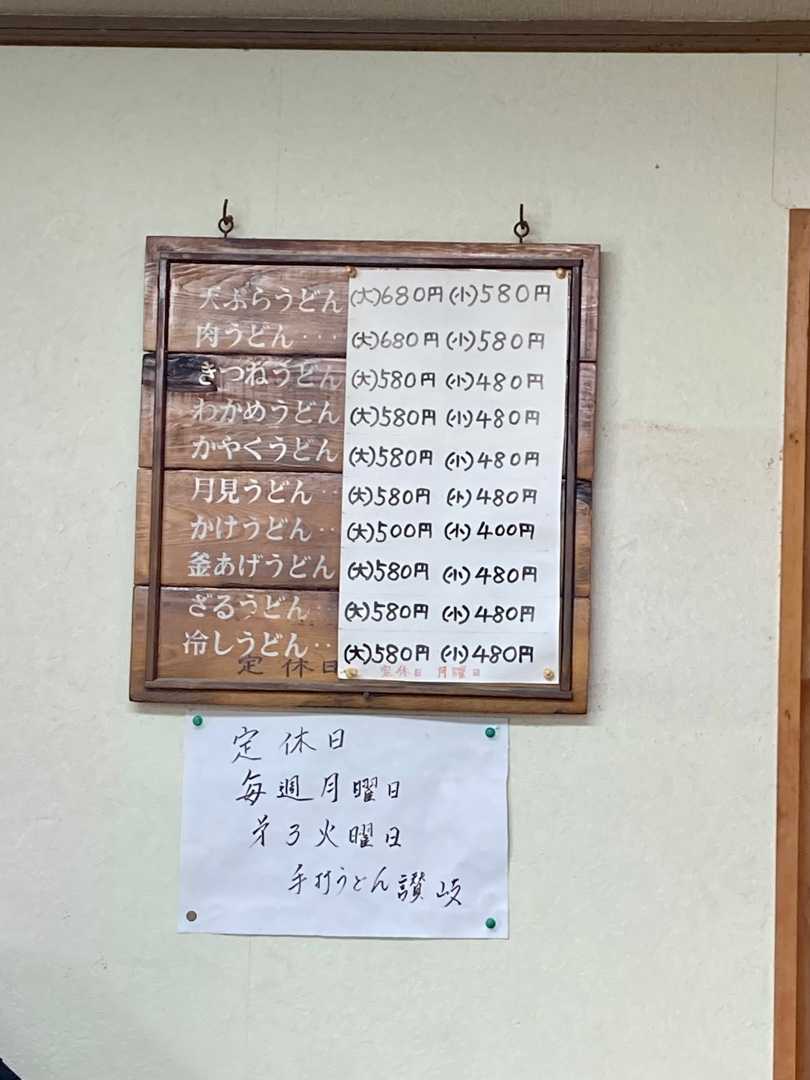 天ぷらうどん (大)680円 (小)580円
肉うどん・・・ (大)680円 (小)580円
きつねうどん (大)580円 (小)480円
わかめうどん (大)580円 (小)480円
かやくうどん (大)580円 (小)480円
月見うどん・・ (大)580円 (小)480円
かけうどん・・ (大)500円 (小)400円
釜あげうどん (大)580円 (小)480円
ざるうどん・・ (大)580円 (小)480円
冷しうどん・・ (大)580円 (小)480円
定休日 定休日 月曜日
定休日
毎週月曜日
第3火曜日
手打うどん 讃岐